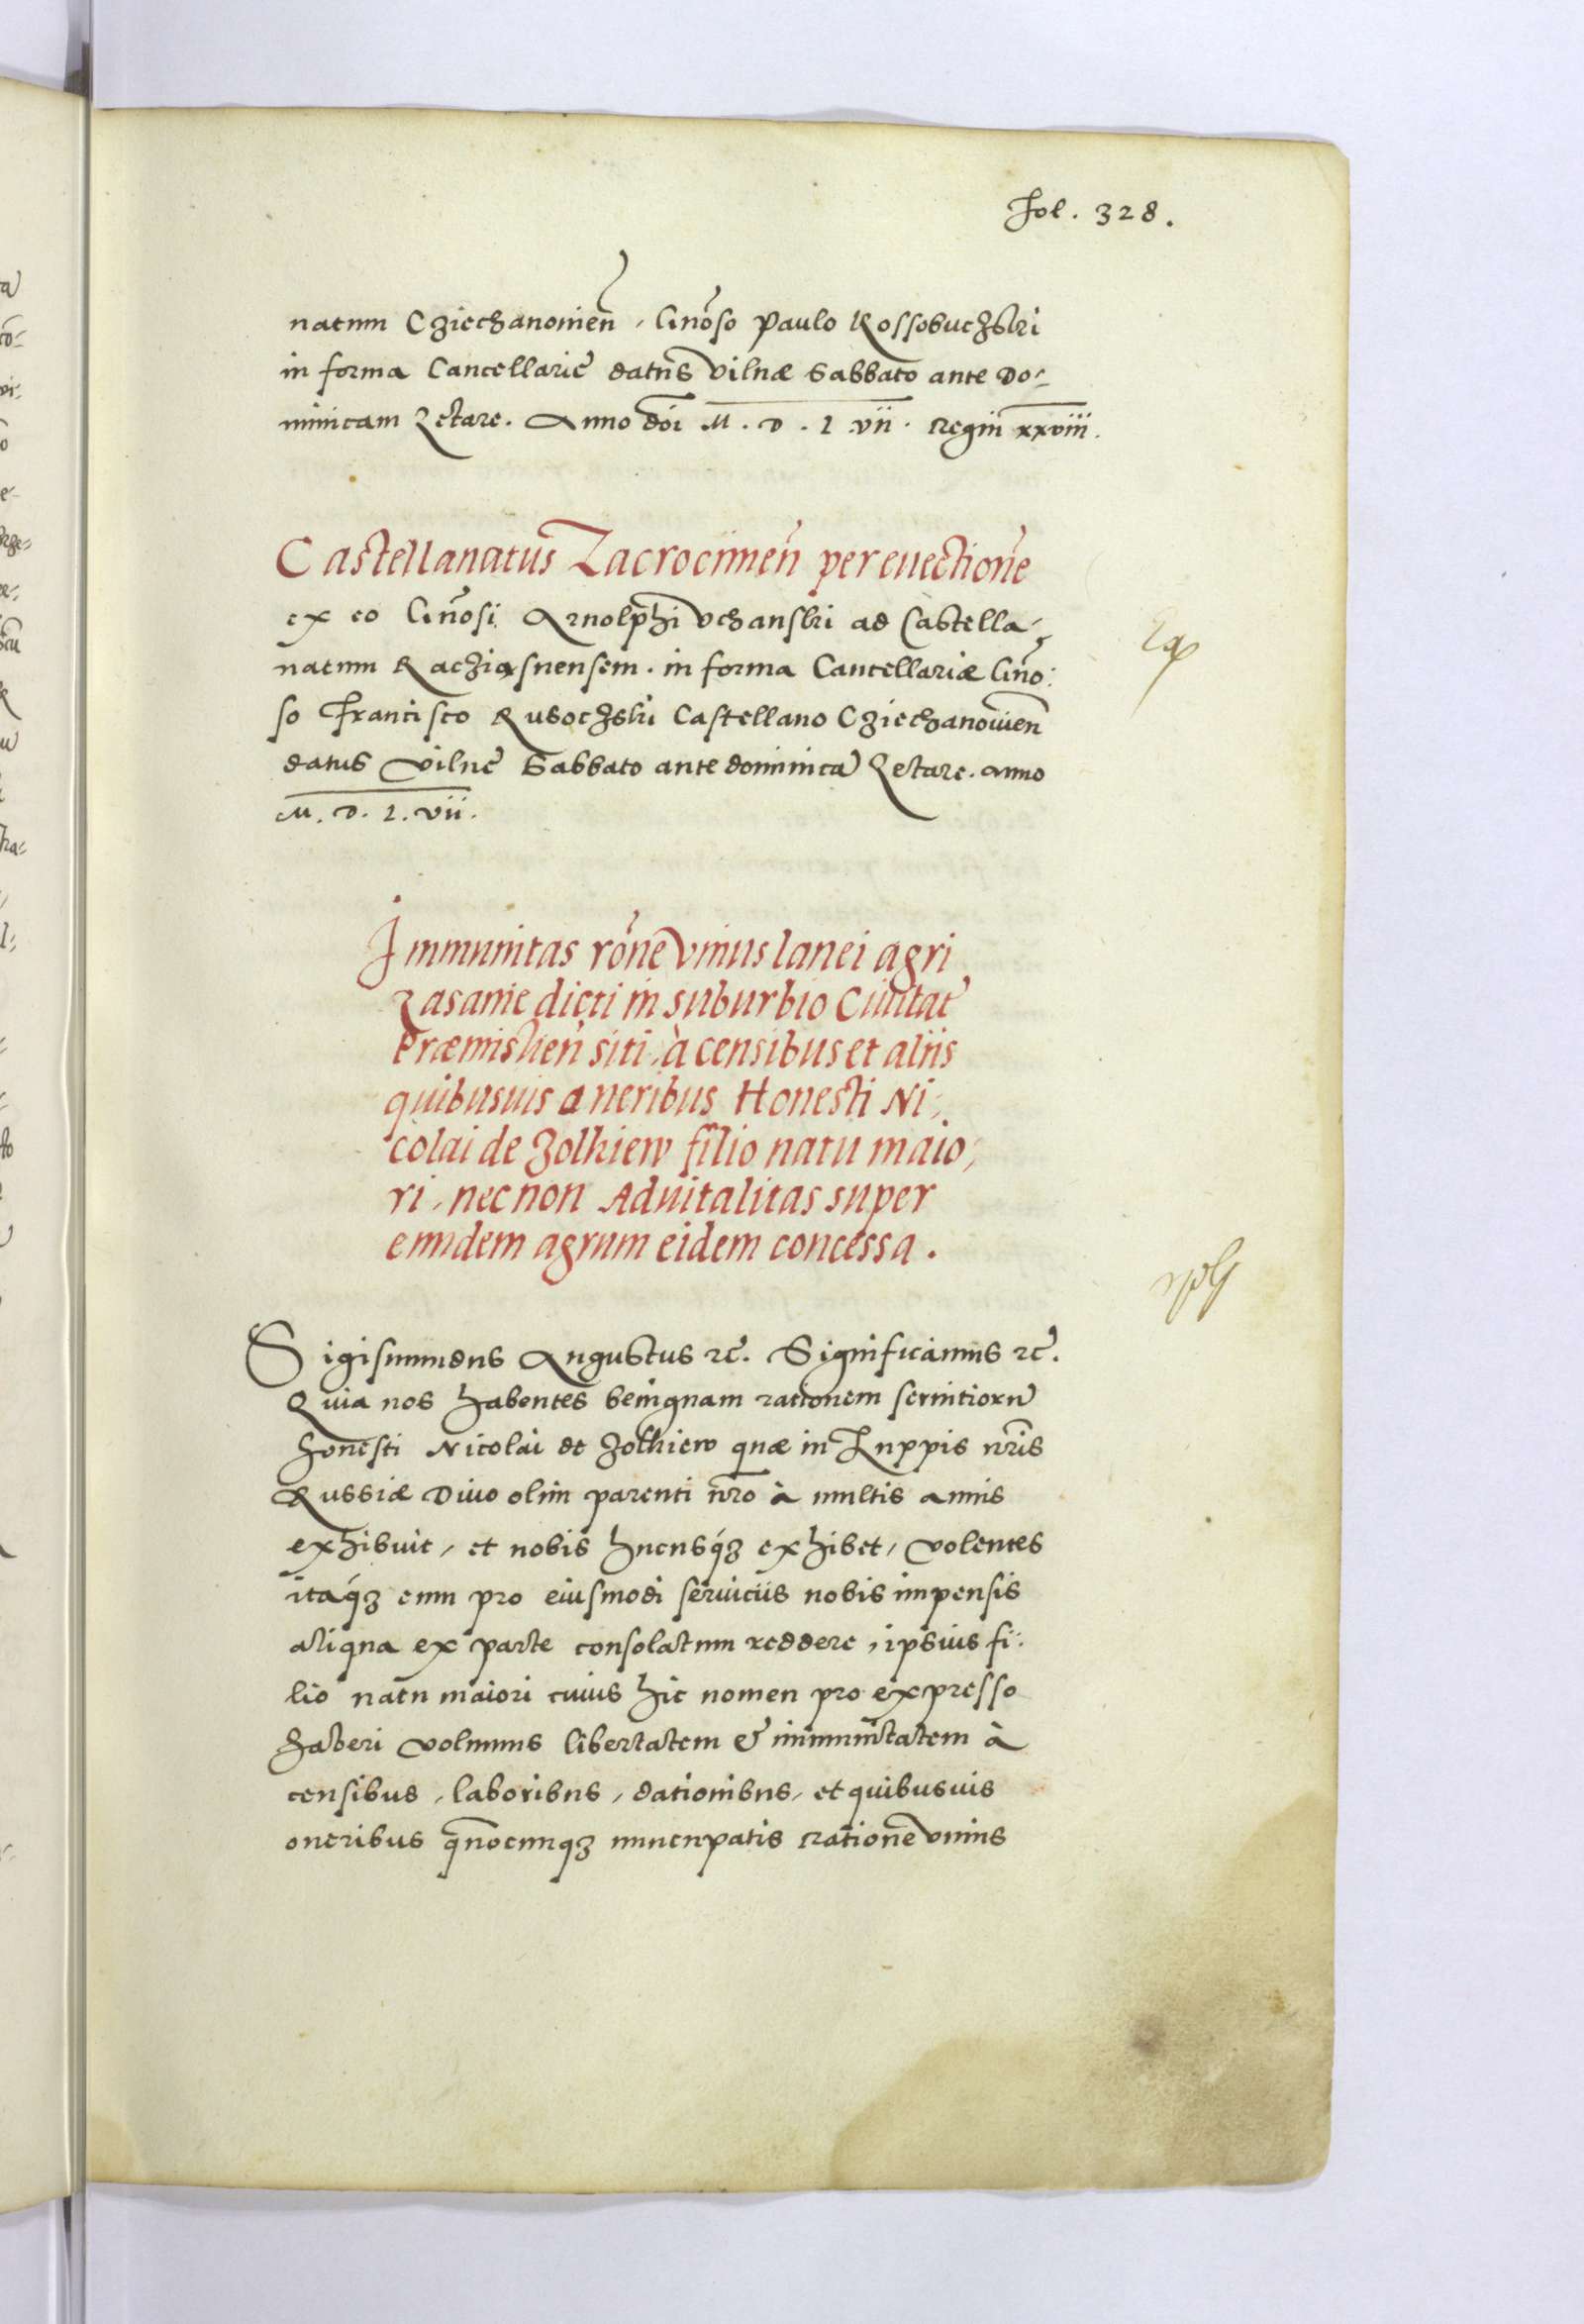 Fol. 328.
natum Cziechanouien̄, Gn̄oso Paulo Kossobuczski
in forma Cancellarie datus Vilnæ Sabbato ante Do-
minicam Letare. Anno dōi M. D. L vii. regni xxviii.
Castellanatus Zacrocimen̄ per euectionē
ex eo Gn̄osi Arnolphi Vchanski ad Castella-
natum Raczięsnensem. in forma Cancellariæ Gn̄o-
so Francisco Rusoczski Castellano Cziechanouien̄
datus Vilne Sabbato ante dominicā Letare. anno
M. D. L. vii.
Immunitas rōne vnius lanei agri
Zasanie dicti in suburbio Ciuitat̄
Præmislien̄ siti, à censibus et aliis
quibusuis oneribus Honesti Ni-
colai de Zolkiew filio natu maio-
ri, nec non Aduitalitas super
eundem agrum eidem concessa.
Sigismundus Augustus rc̄. Significamus rc̄.
Quia nos habentes benignam rationem seruitiorū
honesti Nicolai de Zolkiew quæ in Zuppis nr̄is
Russiæ Diuo olim parenti nr̄o à multis annis
exhibuit, et nobis hucusq́ꝫ exhibet, volentes
itaq́ꝫ eum pro eiusmodi seruiciis nobis impensis
aliqua ex parte consolatum reddere, ipsius fi-
lio natu maiori cuius hic nomen pro expresso
haberi volumus libertatem & immunitatem à
censibus, laboribus, dationibus, et quibusuis
oneribus quocunqꝫ nuncupatis ratione vnius